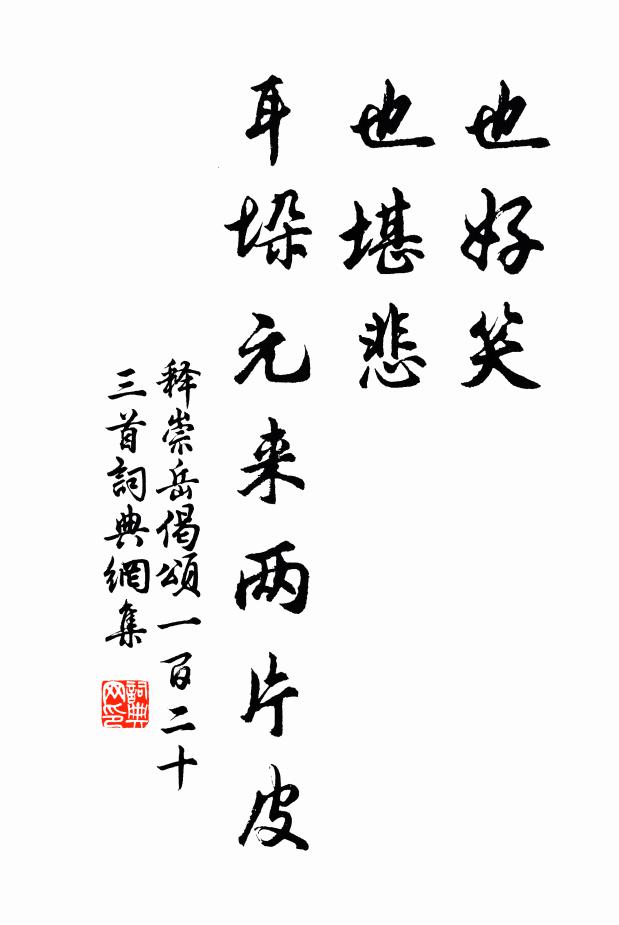 也好笑
也堪悲
耳垛元来两片皮
释崇岳偈頌一百二十
三首詞典網集
詞典
网印